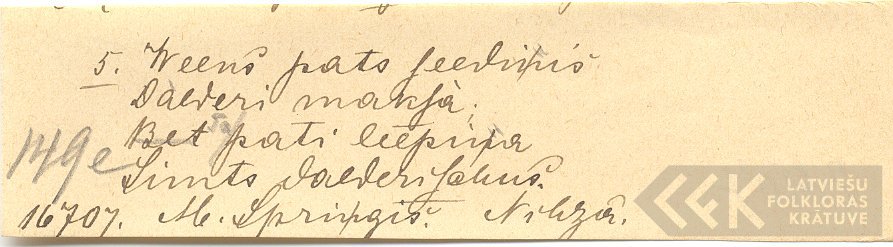 5. Weens pats seediņis
Dalderi maksà,
Bet pati leepiņa
Simts dalderischus.
149e
16707. M. Spriņģis. Nihzâ.
LATVIEŠU
FOLKLORAS
KRĀTUVE